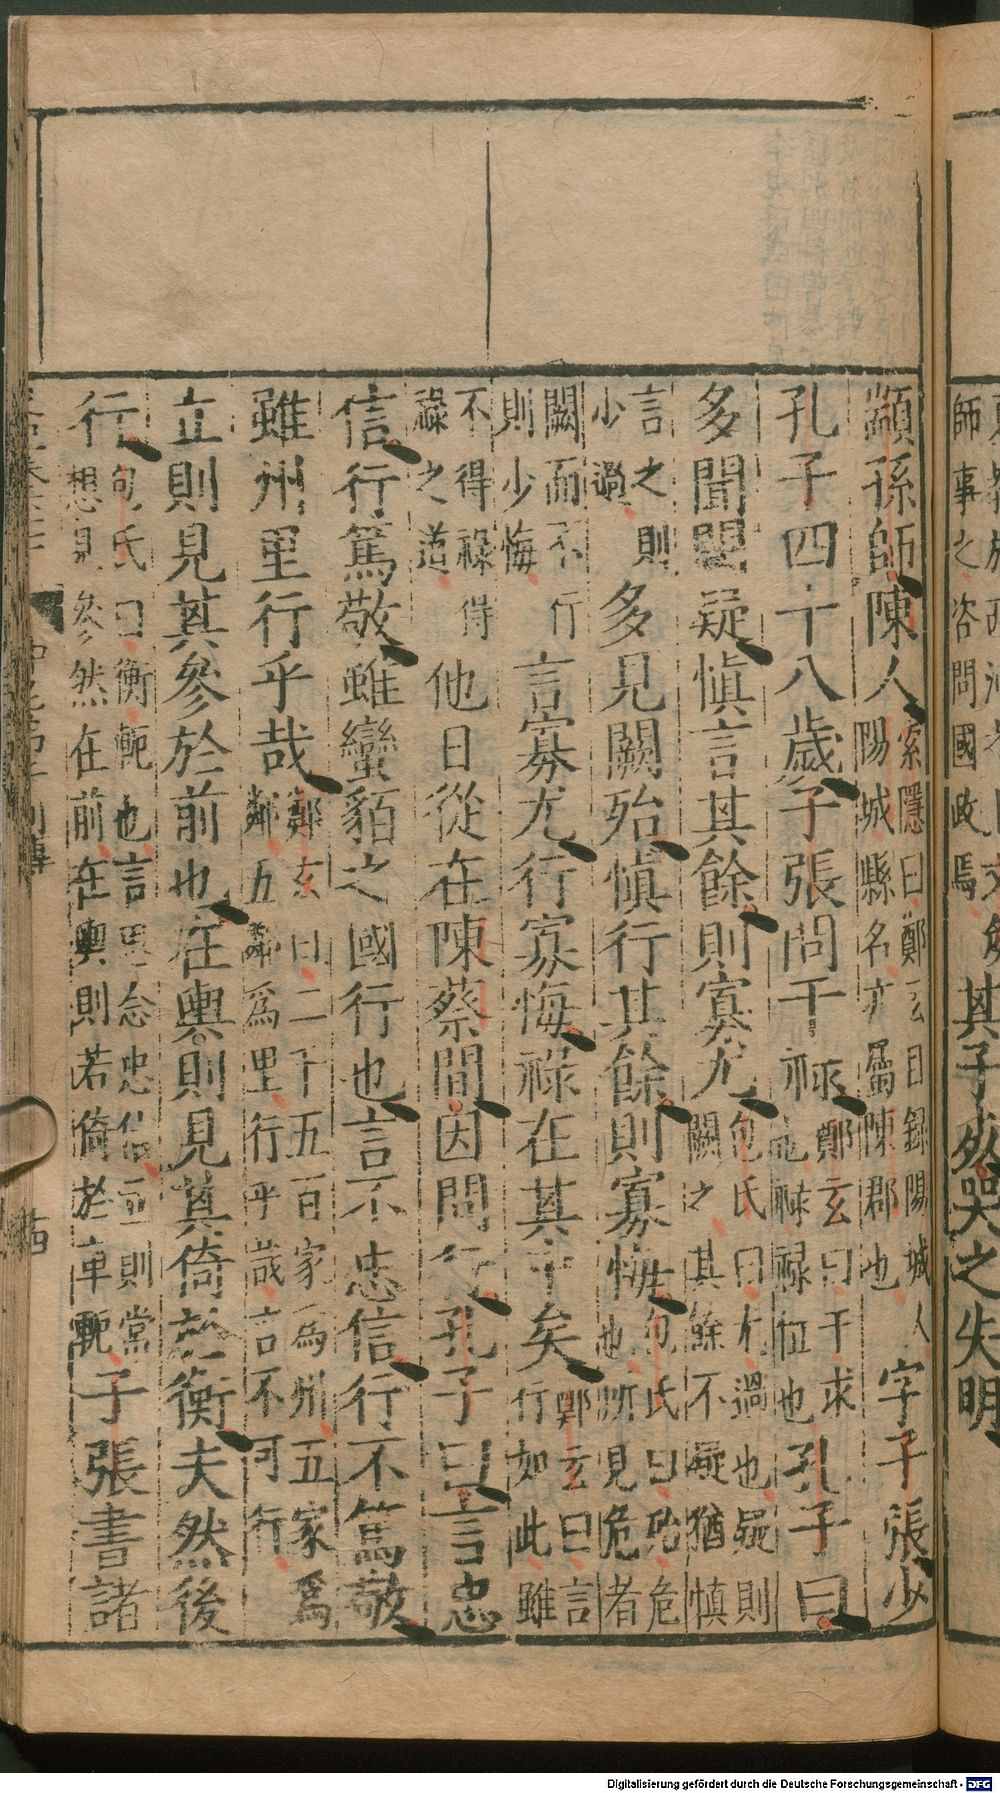 顓孫師陳人索隱曰鄭玄目錄陽城人
陽城縣名亦屬陳郡也字子張少
孔子四十八歲子張問干祿鄭玄曰干求
也祿祿位也孔子曰
多聞闕疑慎言其餘則寡尤包氏曰尤過也疑則
闕之其餘不疑猶慎
言之則
少過多見闕殆慎行其餘則寡悔包氏曰殆危
也所見危者
闕而不行
則少悔言寡尤行寡悔祿在其中矣鄭玄曰言
行如此雖
不得祿得
祿之道他日從在陳蔡間困問行孔子曰言忠
信行篤敬雖蠻貊之國行也言不忠信行不篤敬
雖州里行乎哉鄭玄曰二千五百家為州五家為
鄰五鄰為里行乎哉言不可行
立則見其參於前也在輿則見其倚於衡夫然後
行包氏曰衡軛也言思念忠信立則常
想見參然在前在輿則若倚於車軛子張書諸
師事之咨問國政焉
其子死哭之失明
Digitalisierung gefördert durch die Deutsche Forschungsgemeinschaft - DFG